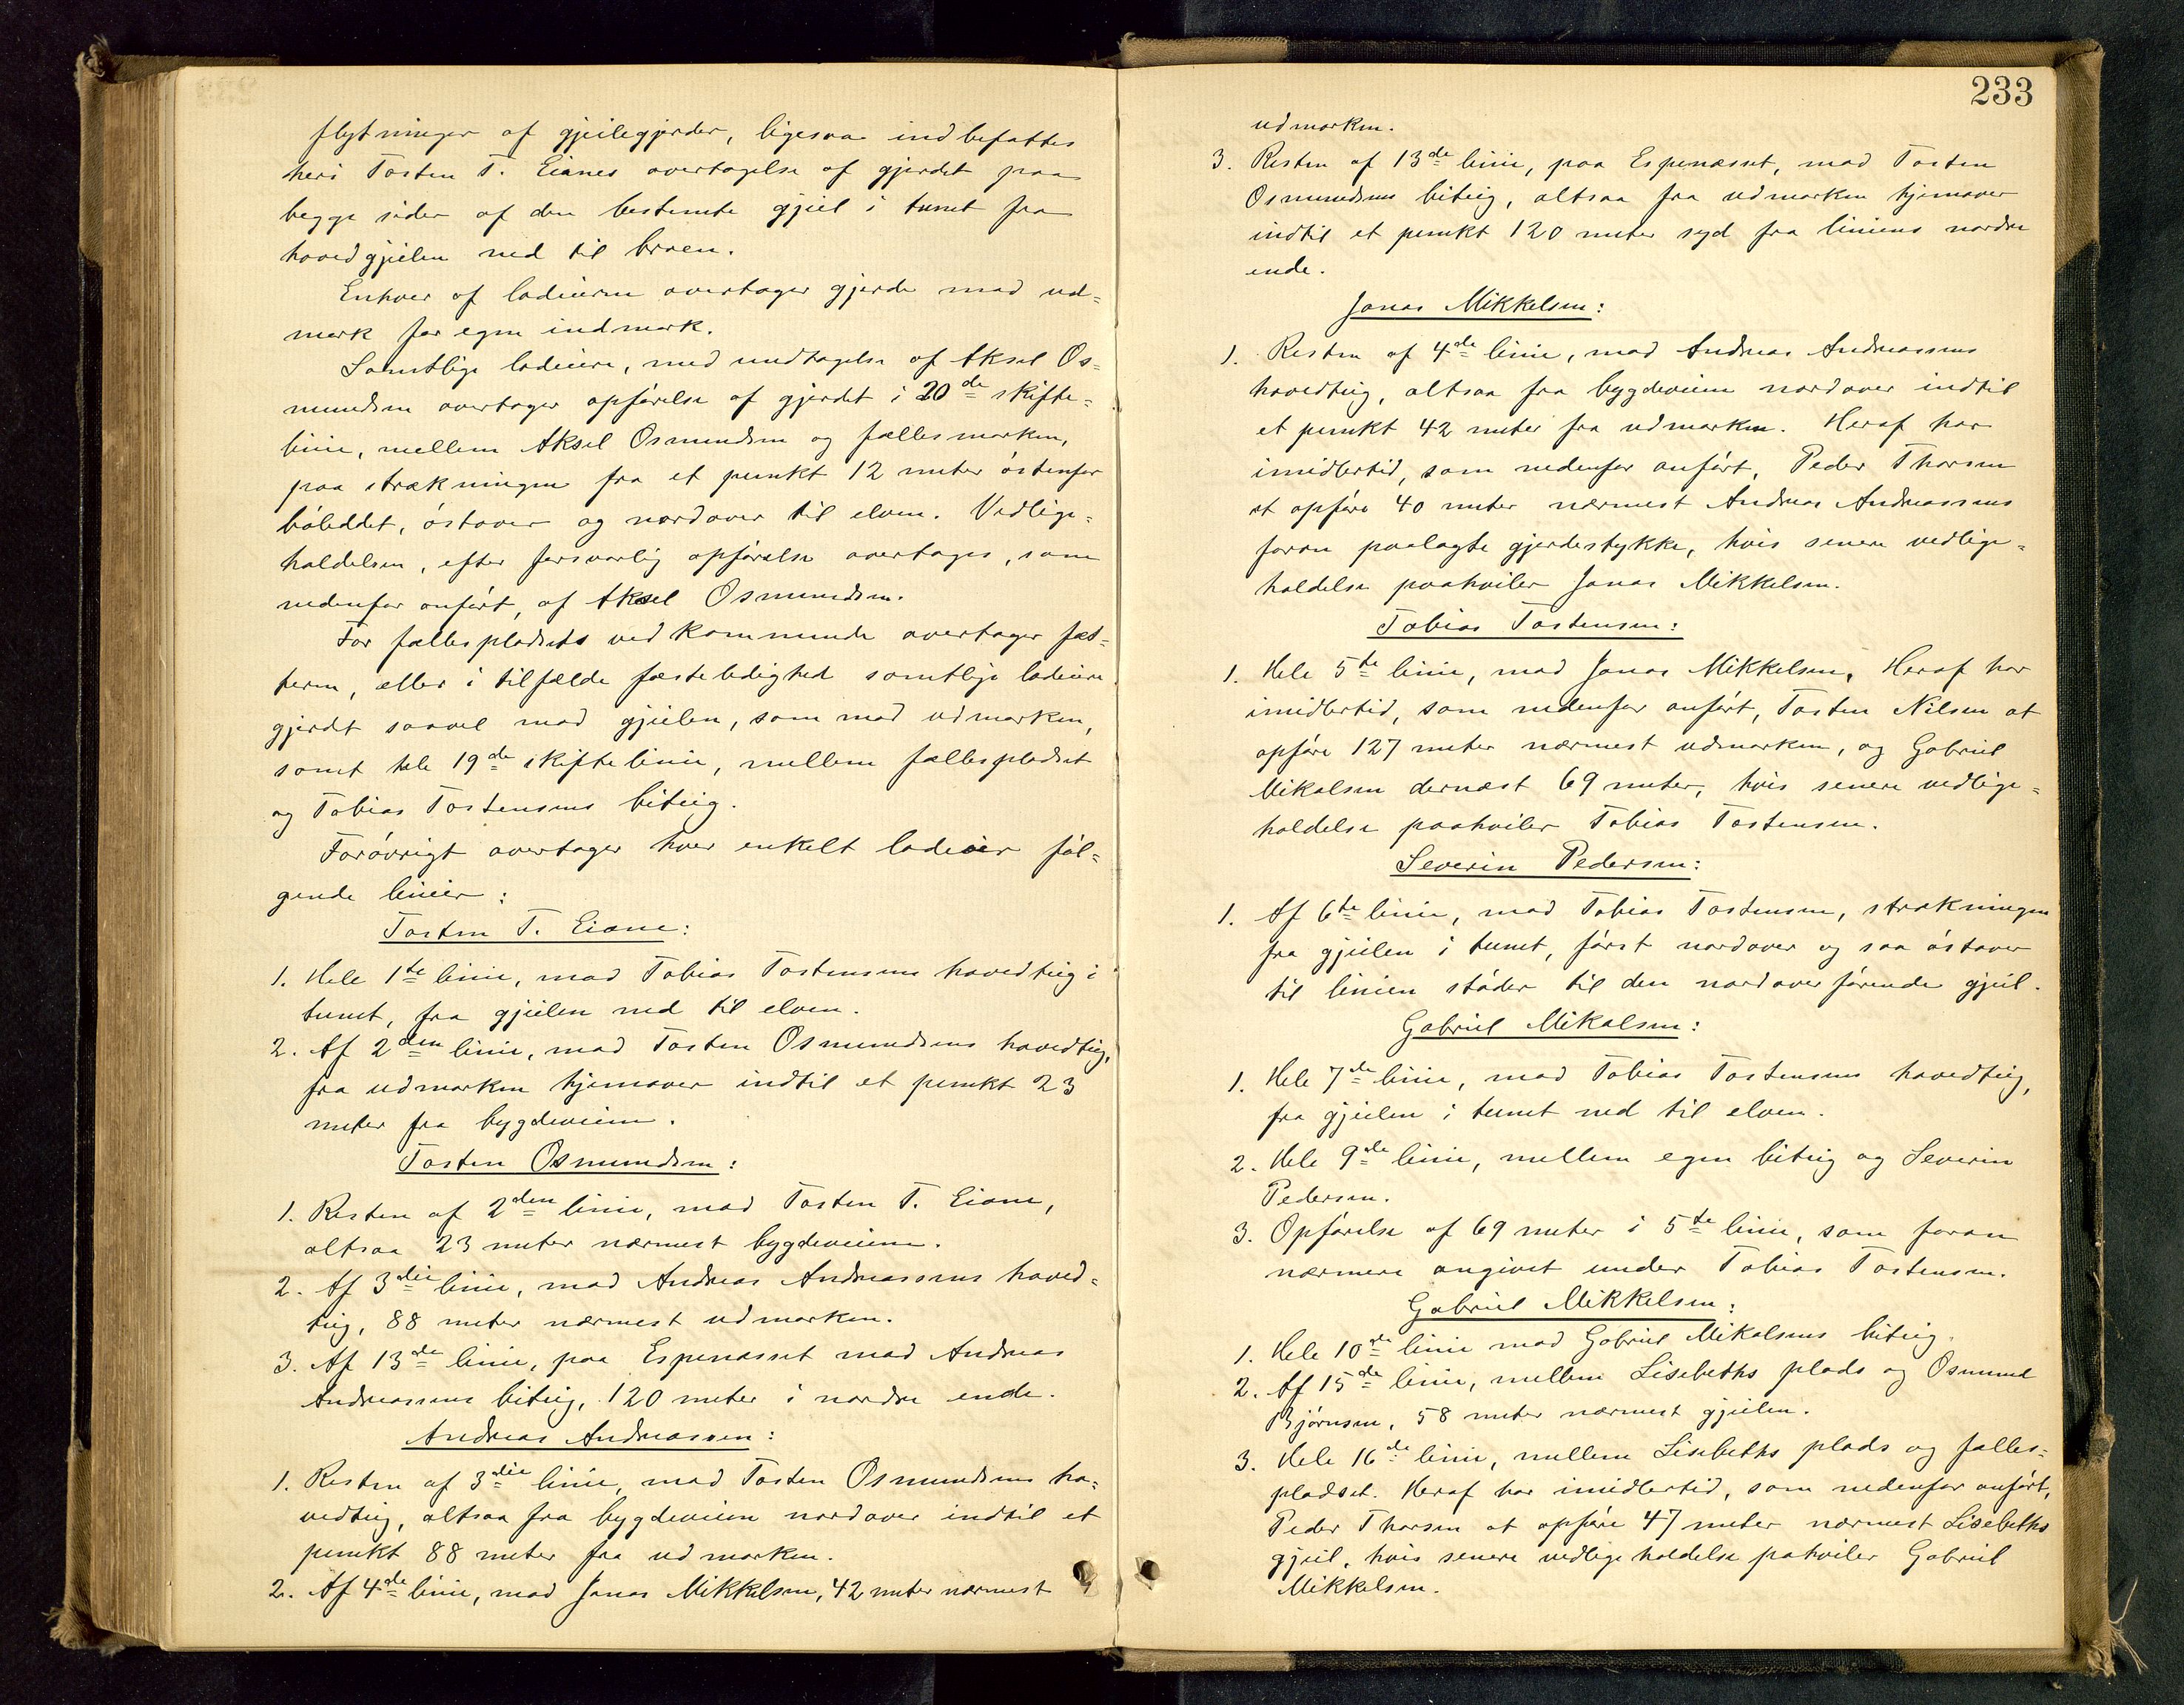 flytninger af gjeilegjerder, ligesaa indbefattes
heri Tosten T. Eianes overtagelse af gjerdet paa
begge sider af den bestemte gjeil i tunet fra
hovedgjeilen ned til broen.
Enhver af lodeierne overtager gjerde mod ud=
mark for egen indmark.
Samtlige lodeiere, med undtagelse af Aksel Os=
mundsen overtager opførelse af gjerdet i 20de skifte=
linie, mellem Aksel Osmundsen og fællesmarken,
paa strækningen fra et punkt 12 meter østenfor
bøleddet, østover og nordover til elven. Vedlige=
holdelsen, efter forsvarlig opførelse overtages, som
nedenfor anført, af Aksel Osmundsen.
For fællespladsets vedkommende overtager fæs=
teren, eller i tilfælde fæsteledighed samtlige lodeiere
gjerdet saavel mod gjeilen, som mod udmarken,
samt hele 19de skiftelinie, mellem fællespladset
og Tobias Tostensens biteig.
Forøvrigt overtager hver enkelt lodeier føl=
gende linier:
Tosten T. Eiane:
1. Hele 1te linie, mod Tobias Tostensens hovedteig i
tunet, fra gjeilen ned til elven.
2. Af 2den linie, mod Tosten Osmundsens hovedteig,
fra udmarken hjemover indtil et punkt 23
meter fra bygdeveien.
Tosten Osmundsen:
1. Resten af 2den linie, mod Tosten T. Eiane,
altsaa 23 meter nærmest bygdeveien.
2. Af 3die linie, mod Andreas Andreassens hoved=
teig, 88 meter nærmest udmarken.
3. Af 13de linie, paa Espenæsset mod Andreas
Andreassens biteig, 120 meter i nordre ende.
Andreas Andreassen:
1. Resten af 3die linie, mod Tosten Osmundsens ho=
vedteig, altsaa fra bygdeveien nordover indtil et
punkt 88 meter fra udmarken.
2. Af 4de linie, mod Jonas Mikkelsen, 42 meter nærmest
233
udmarken.
3. Resten af 13de linie, paa Espenæsset, mod Tosten
Osmundsens biteig, altsaa fra udmarken hjemover
indtil et punkt 120 meter syd fra liniens nordre
ende.
Jonas Mikkelsen:
1. Resten af 4de linie, mod Andreas Andreassens
hovedteig, altsaa fra bygdeveien nordover indtil
et punkt 42 meter fra udmarken. Heraf har
imidlertid, som nedenfor anført, Peder Thorsen
at opføre 40 meter nærmest Andreas Andreassens
foran paalagte gjerdestykke, hvis senere vedlige=
holdelse paahviler Jonas Mikkelsen.
Tobias Tostensen:
1. Hele 5te linie, mod Jonas Mikkelsen. Heraf har
imidlertid, som nedenfor anført, Tosten Nilsen at
opføre 127 meter nærmest udmarken, og Gabriel
Mikalsen dernæst 69 meter, hvis senere vedlige=
holdelse paahviler Tobias Tostensen.
Severin Pedersen:
1. Af 6te linie, mod Tobias Tostensen, strækningen
fra gjeilen i tunet, først nordover og saa østover
til linien støder til den nordover førende gjeil.
Gabriel Mikalsen:
1. Hele 7de linie, mod Tobias Tostensens hovedteig,
fra gjeilen i tunet ned til elven.
2. Hele 9de linie, mellem egen biteig og Severin
Pedersen.
3. Opførelse af 69 meter i 5te linie, som foran
nærmere angivet under Tobias Tostensen.
Gabriel Mikkelsen:
1. Hele 10de linie mod Gabriel Mikalsens biteig.
2. Af 15de linie, mellem Lisebeths plads og Osmund
Bjørnsen, 58 meter nærmest gjeilen.
3. Hele 16de linie, mellem Lisebeths plads og fælles=
pladset. Heraf har imidlertid, som nedenfor anført,
Peder Thorsen at opføre 47 meter nærmest Lisebeths
gjeil, hvis senere vedligeholdelse pahviler Gabriel
Mikkelsen.